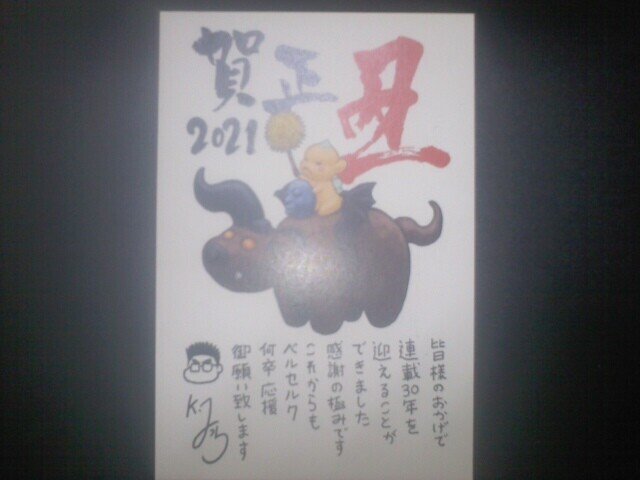 賀正
丑
2021
皆様のおかげで
連載30年を
迎えることが
できました
感謝の極みです
これからも
ベルセルク
何卒応援
御願い致します